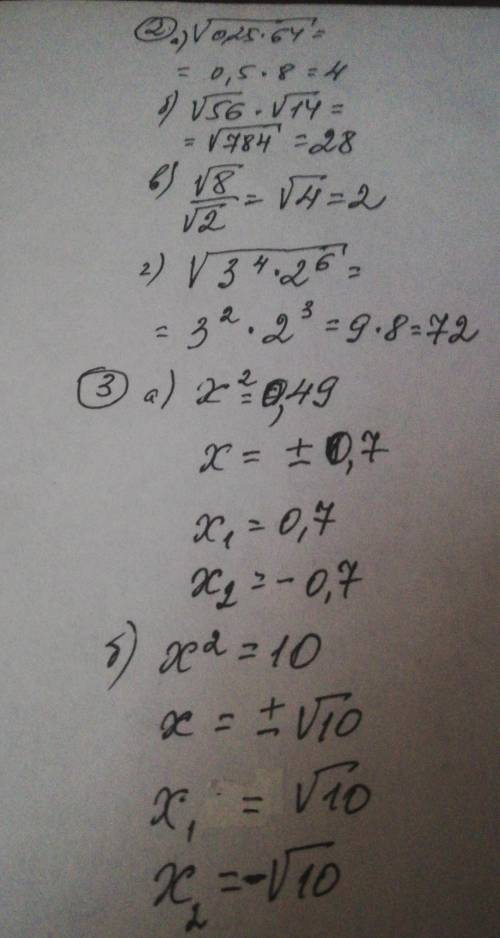 ② а) √0,25·64 =
= 0,5·8 = 4
б) √56 · √14 =
= √784 = 28
в) √8/√2 = √4 = 2
г) √3⁴·2⁶ =
= 3² · 2³ = 9·8 = 72
③ а) x² = 0,49
x = ± 0,7
x₁ = 0,7
x₂ = - 0,7
б) x² = 10
x = ± √10
x₁ = √10
x₂ = -√10